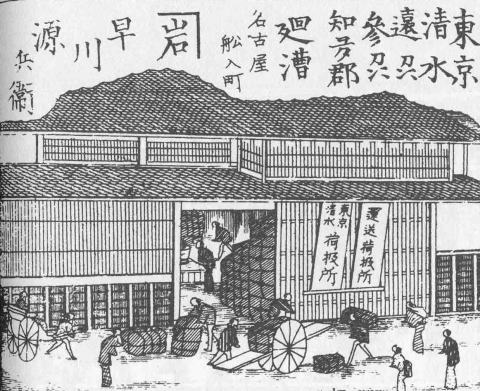 東京
清水
遠刕
參刕
知多郡
廻漕
名古屋
舩入町
岩
早川
源兵衞
運送荷扱所
東京
清水
荷扱所